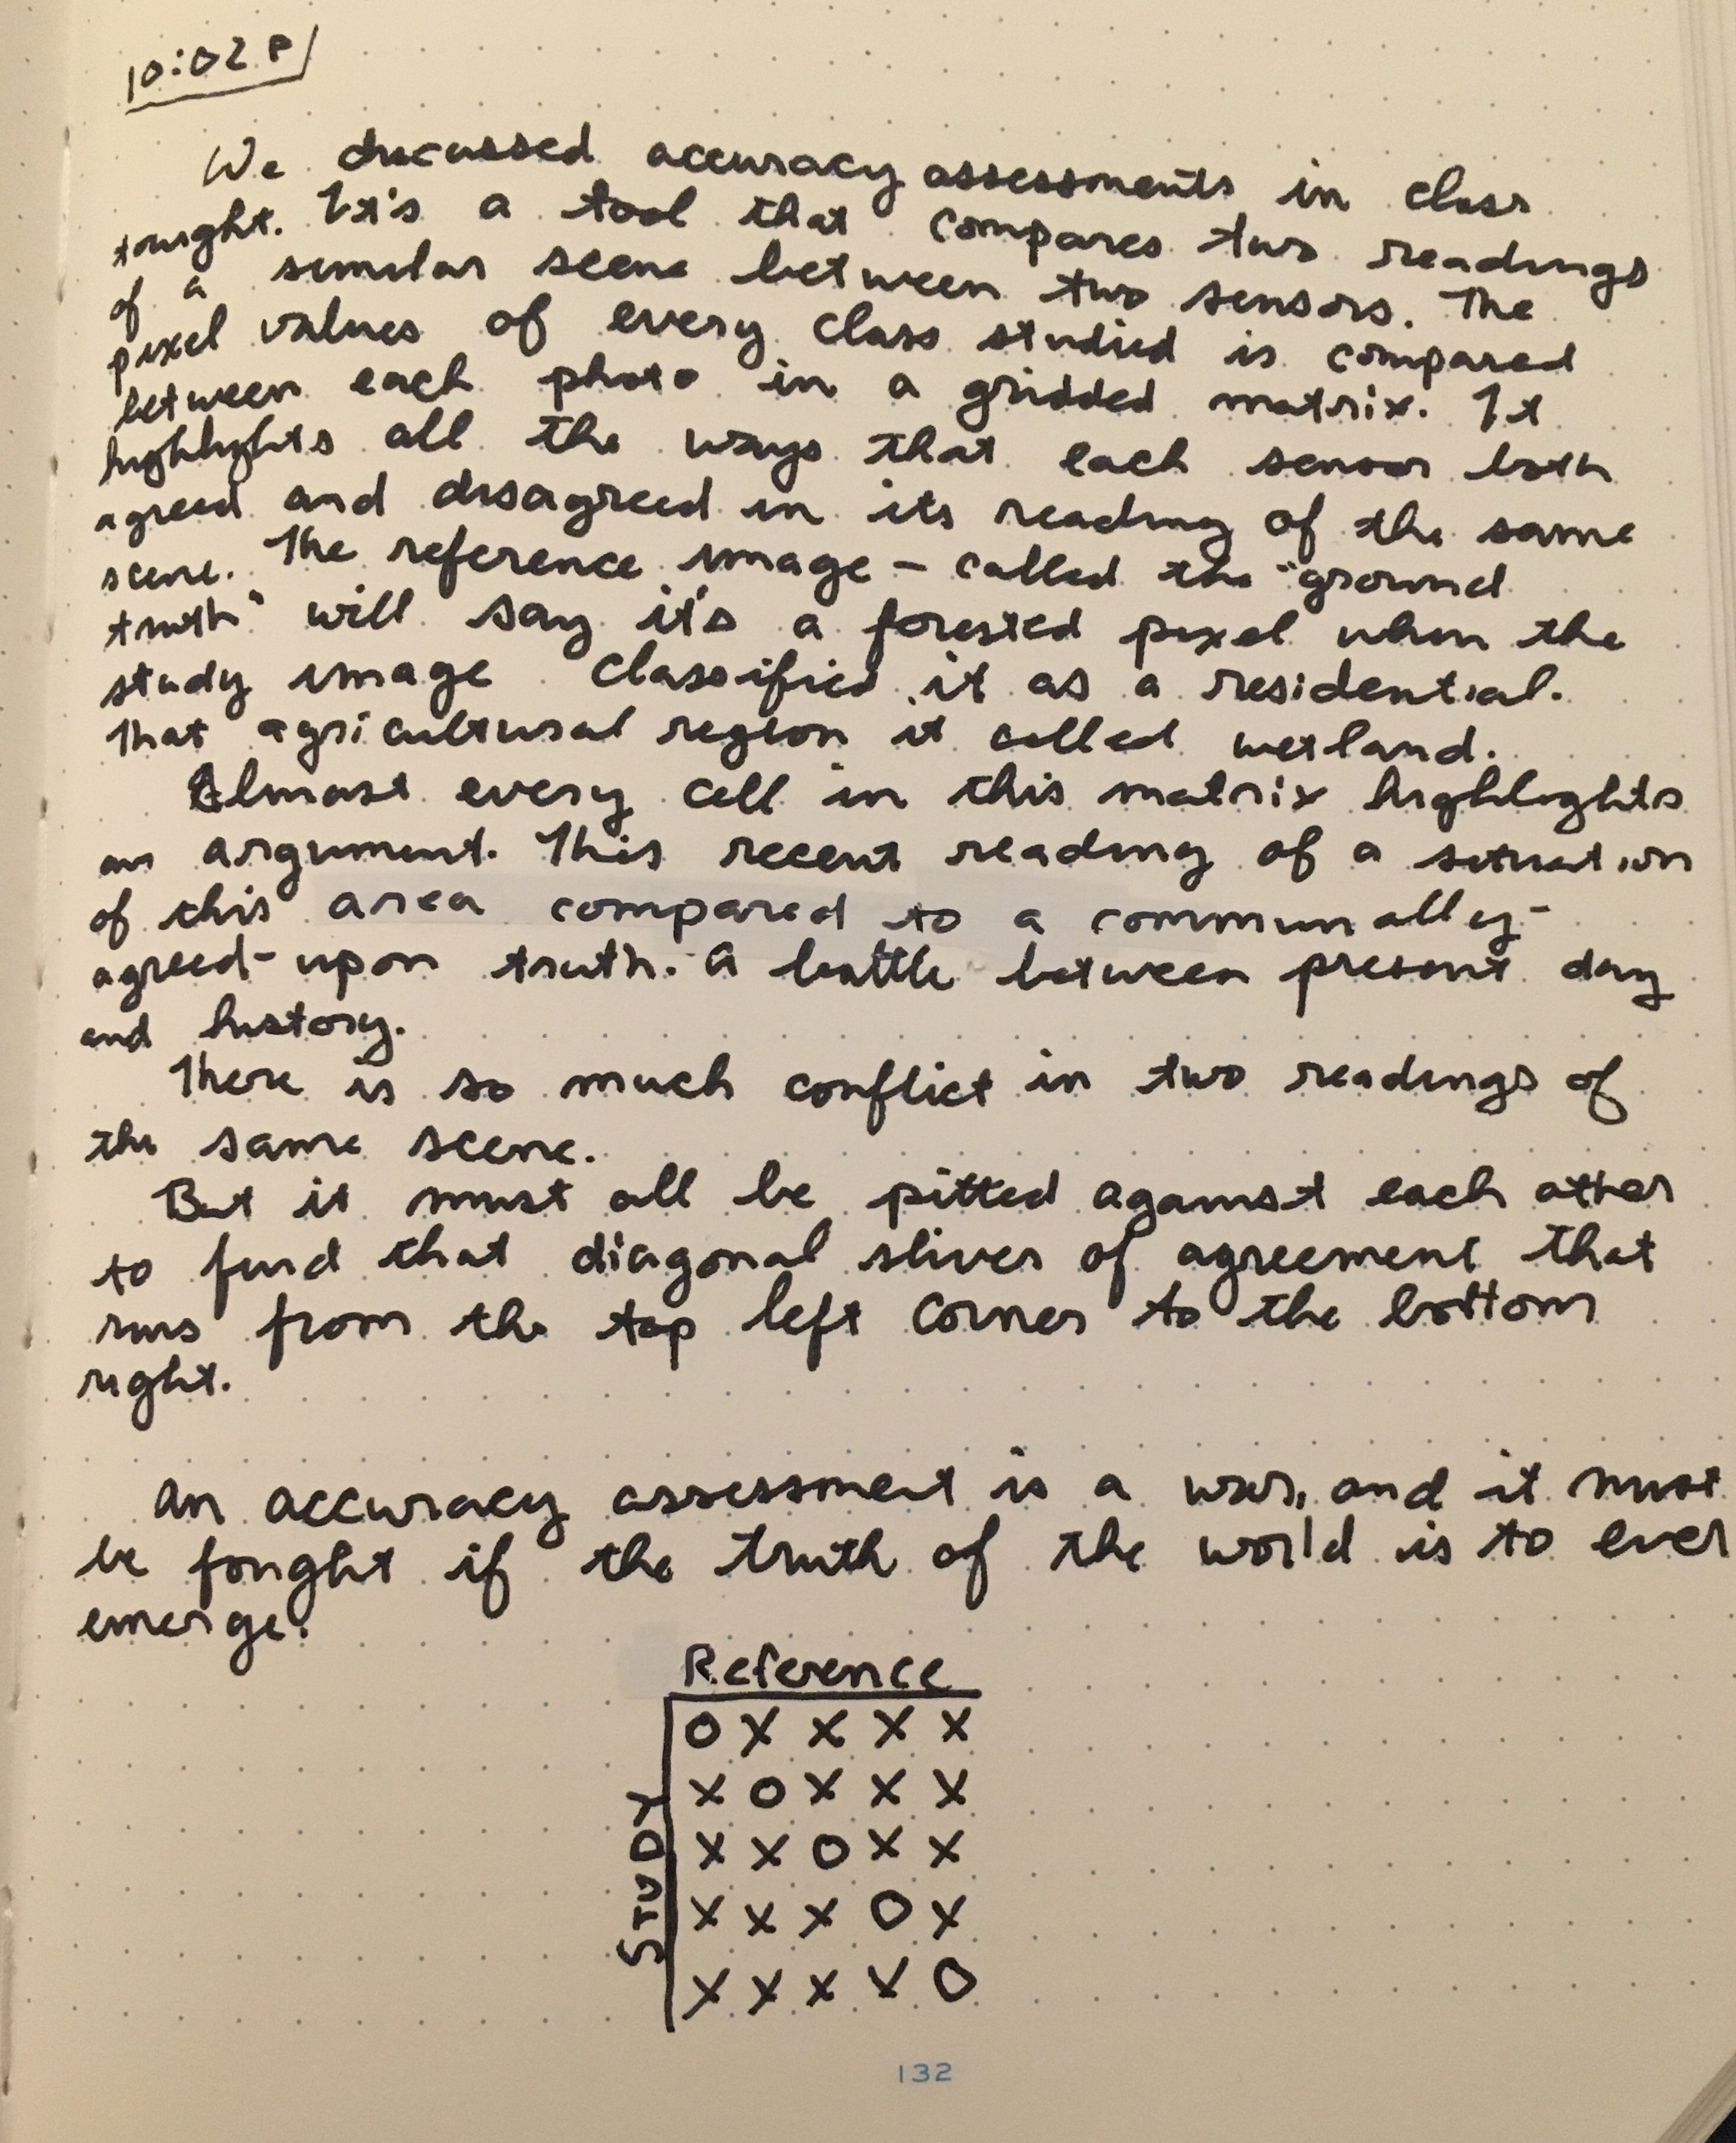 10:02 P
We discussed accuracy assessments in class
tonight. It's a tool that compares two readings
of a similar scene between two sensors. The
pixel values of every class studied is compared
between each photo in a gridded matrix. It
highlights all the ways that each sensor both
agreed and disagreed in its reading of the same
scene. The reference image - called the "ground
truth" will say it's a forested pixel when the
study image classified it as a residential.
That agricultural region it called wetland.
Almost every cell in this matrix highlights
an argument. This recent reading of a situation
of this area compared to a communally-
agreed-upon truth. A battle between present day
and history.
There is so much conflict in two readings of
the same scene.
But it must all be pitted against each other
to find that diagonal sliver of agreement that
runs from the top left corner to the bottom
right.
An accuracy assessment is a war, and it must
be fought if the truth of the world is to ever
emerge.
Reference
STUDY
O X X X X
X O X X X
X X O X X
X X X O X
X X X X O
132